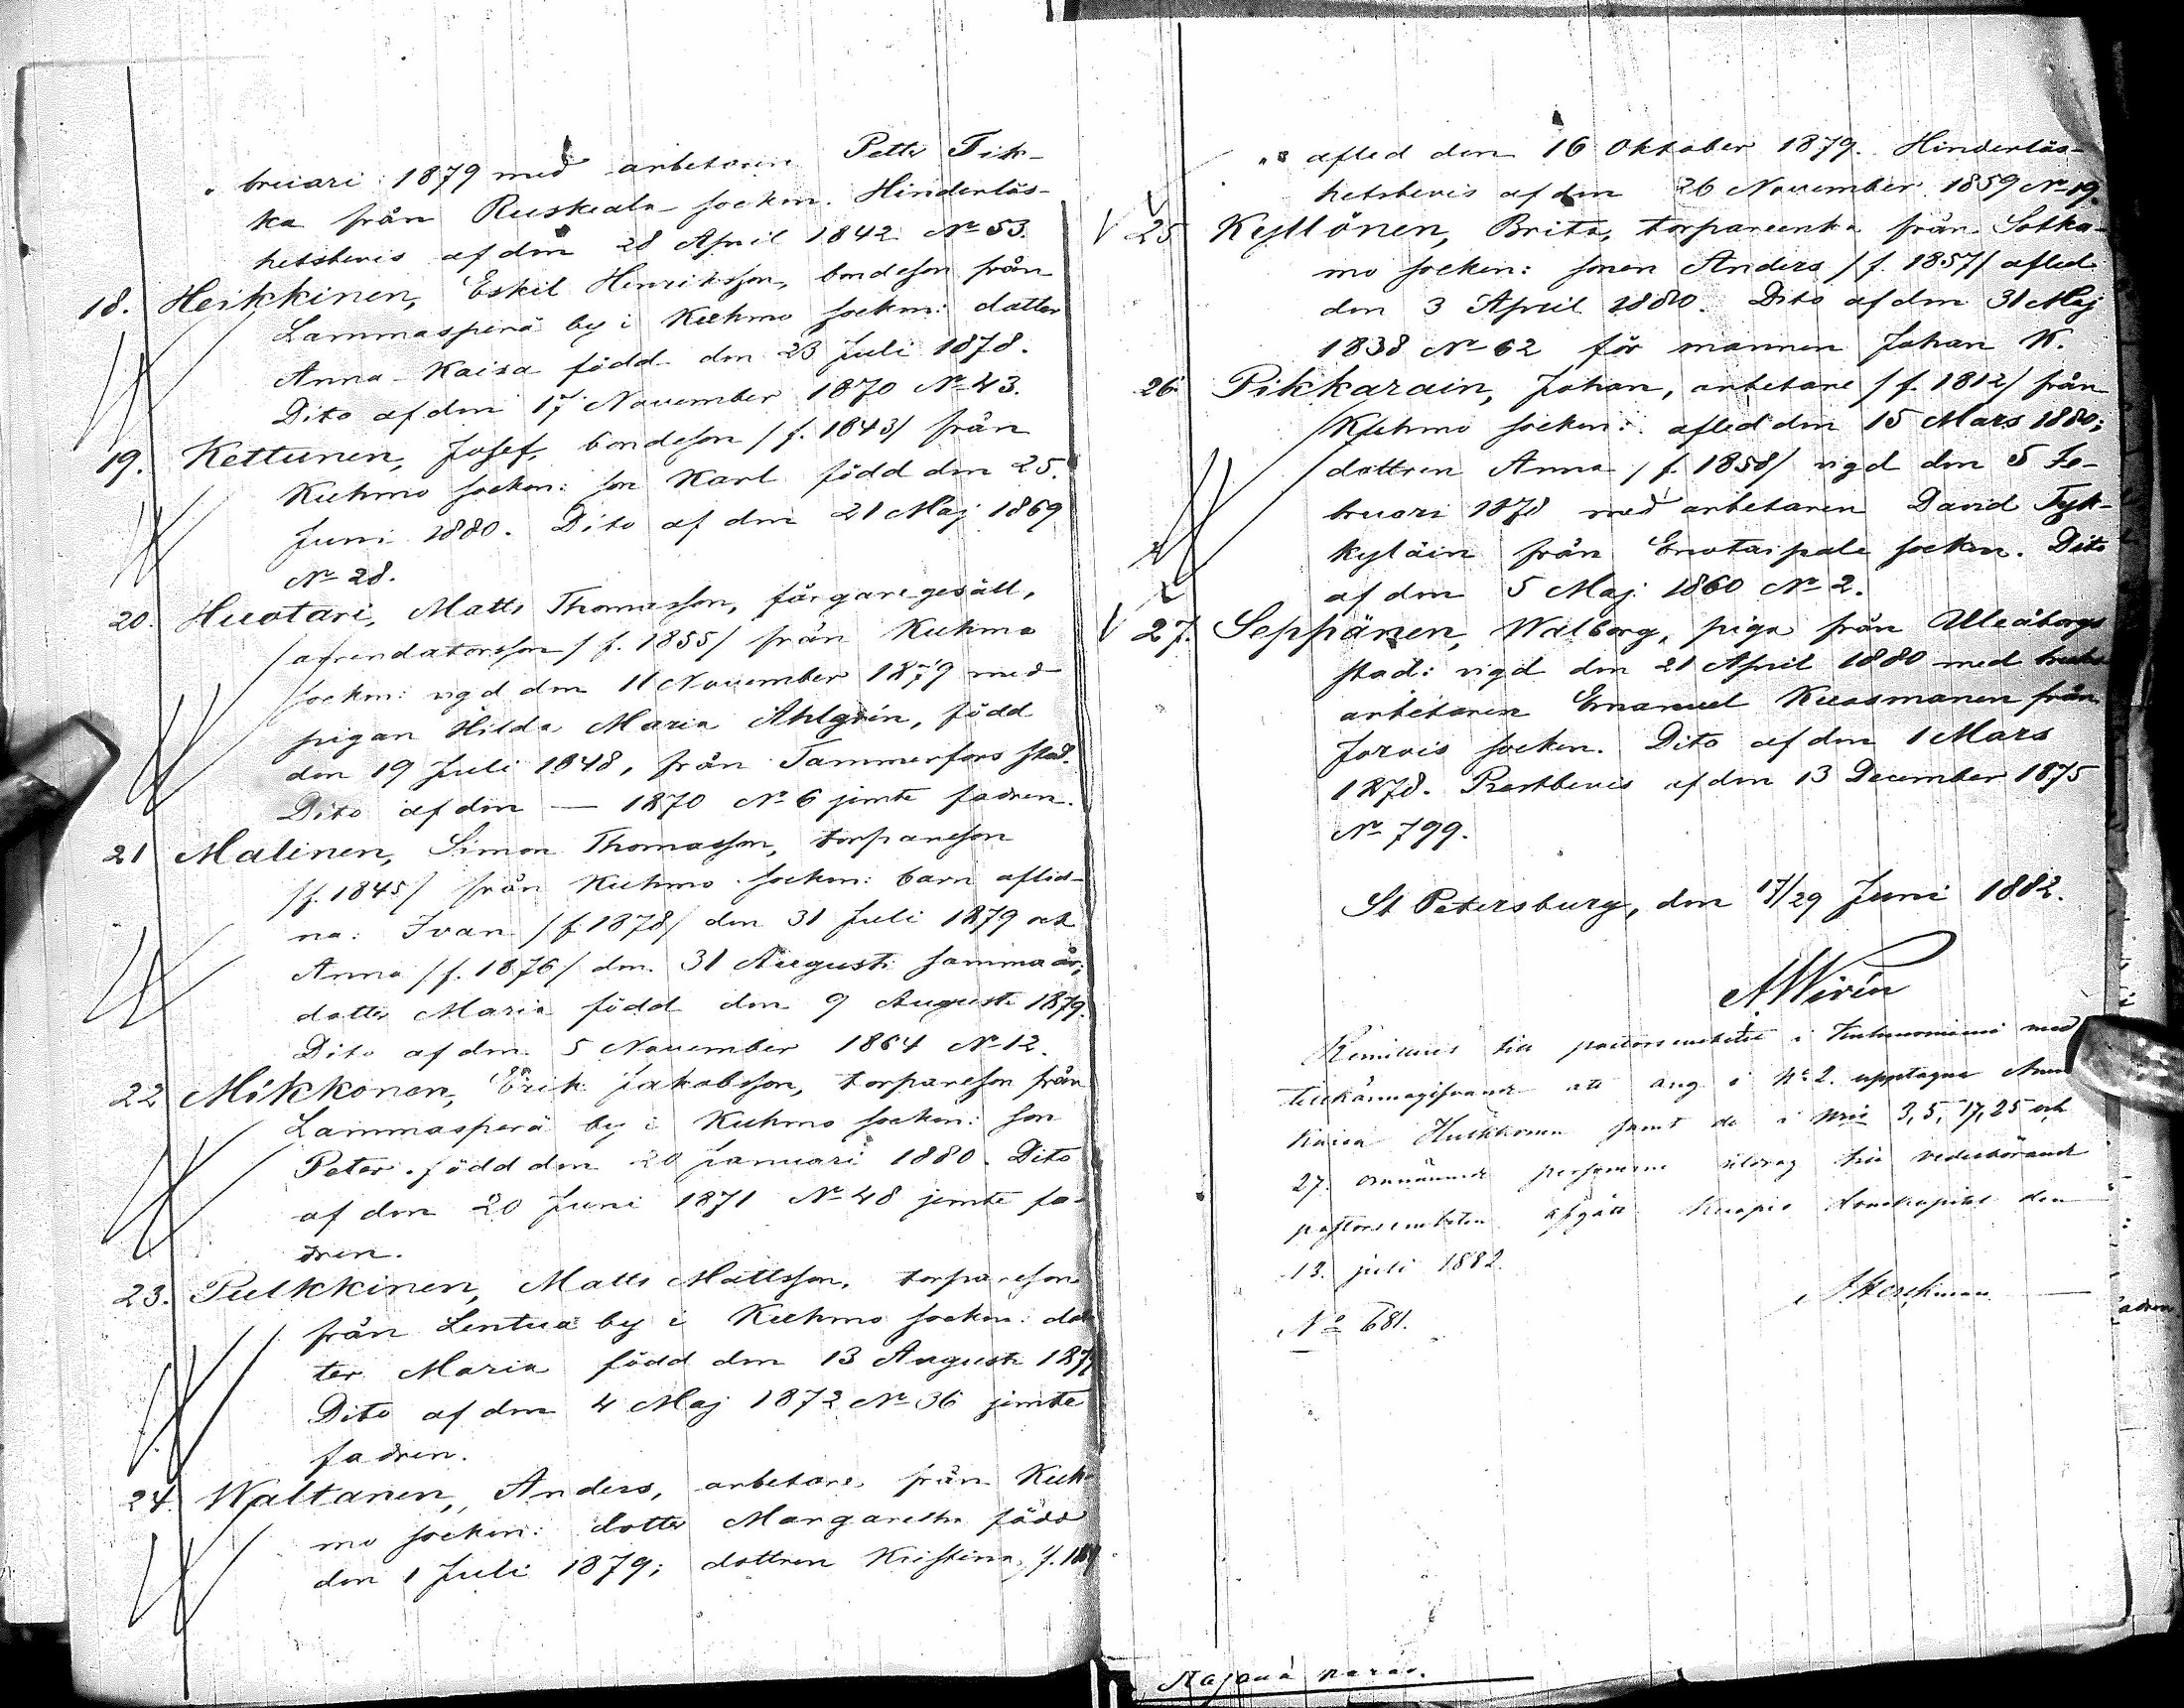 bruari 1879 med arbetaren Petter Tik-
ka från Ruskeala socken. Hinderlös-
hetsbevis af den 28 April 1842 No 53.
18. Heikkinen, Eskil Henriksson, bondeson från
Lammasperä by i Kuhmo socken: dotter
Anna Kaisa född den 23 Juli 1878.
Dito af den 17 November 1870 No 43.
19. Kettunen, Josef, bondeson /f. 1843/ från
Kuhmo socken: son Karl född den 25.
Juni 1880. Dito af den 21 Maj 1869
No 28.
20. Huotari, Matts Thomasson, färgaregesäll,
arrendatorsson /f. 1855/ från Kuhmo
socken: vigd den 11 November 1879 med
pigan Hilda Maria Ahlgrén, född
den 19 Juli 1848, från Tammerfors stad.
Dito af den — 1870 No 6 jemte fadren.
21 Malinen, Simon Thomasson, torpareson
/f. 1845/ från Kuhmo socken: barn aflid-
na: Ivan /f. 1878/ den 31 Juli 1879 och
Anna /f. 1876/ den 31 Augusti samma år;
dotter Maria född den 9 Augusti 1879.
Dito af den 5 November 1864 No 12.
22 Mikkonen, Erik Jakobsson, torpareson från
Lammasperä by i Kuhmo socken: son
Peter född den 20 Januari 1880. Dito
af den 20 Juni 1871 No 48 jemte fa-
dren.
23. Pulkkinen, Matts Mattsson, torpareson
från Lentua by i Kuhmo socken: dot
ter Maria född den 13 Augusti 1879
Dito af den 4 Maj 1872 No 36 jemte
fadren.
24. Waltanen, Anders, arbetare från Kuh-
mo socken: dotter Margaretha född
den 1 Juli 1879; dottren Kristina /f.
afled den 16 Oktober 1879. Hinderlös-
hetsbevis af den 26 November 1859 No 19.
25 Kyllönen, Brita, torpareenka från Sotka-
mo socken: sonen Anders /f. 1857/ afled
den 3 April 1880. Dito af den 31 Maj
1838 No 62 för mannen Johan K.
26. Pikkarain, Johan, arbetare /f. 1812/ från
Kuhmo socken: afled den 15 Mars 1880;
dottren Anna /f. 1858/ vigd den 5 Fe-
bruari 1878 med arbetaren David Tyk-
kyläin från Enotaipale socken. Dito
af den 5 Maj 1860 No 2.
27. Seppänen, Walborg, piga från Uleåborgs
stad: vigd den 21 April 1880 med bruks
arbetaren Emanuel Kuosmanen från
Jorois socken. Dito af den 1 Mars
1878. Prestbevis af den 13 December 1875
No 799.
St Petersburg, den 17/29 Juni 1882.
A Wirén
Remitteras till pastorsembetet i Kuhmoniemi med
tillkännagifvande att ang i No 2. upptagne Anna
Kaisa samt de i Nris 3, 5, 17, 25 och
27. omnämnde personerne utdrag till vederbörande
pastorsembeten afgått. Kuopio domkapitel den
13. juli 1882.
No 681.